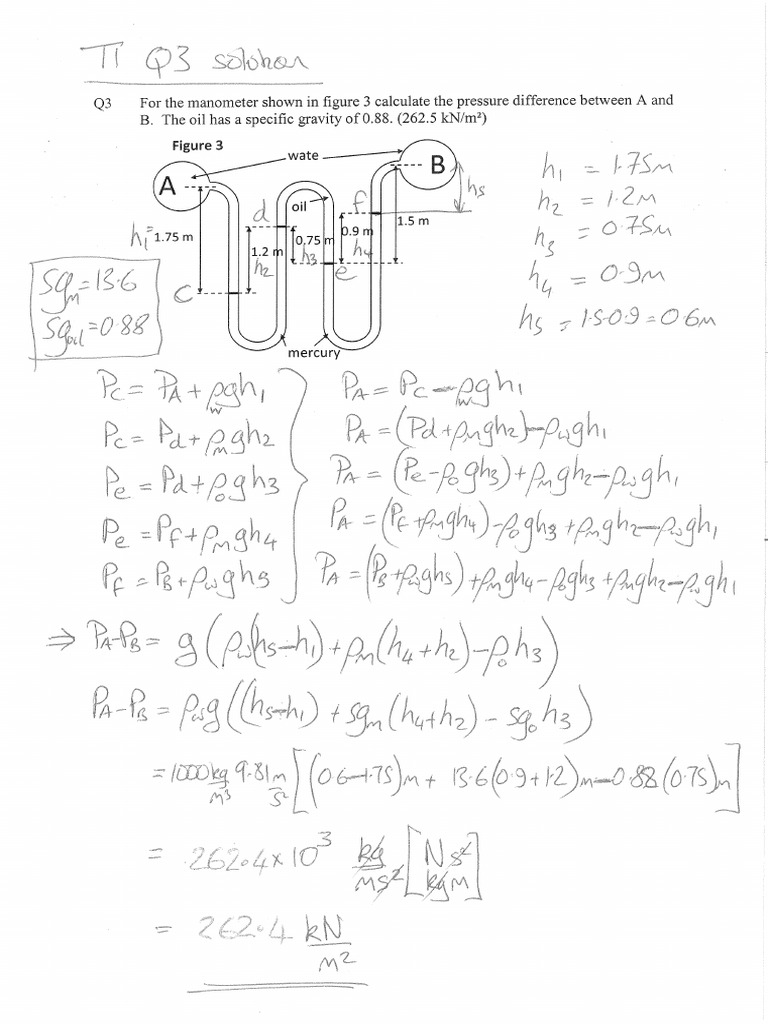 T1 Q3 solution
Q3 For the manometer shown in figure 3 calculate the pressure difference between A and
B. The oil has a specific gravity of 0.88. (262.5 kN/m²)
Figure 3
wate
A
B
oil
d
f
h5
h1 = 1.75 m
1.2 m
h2
0.75 m
h3
0.9 m
h4
1.5 m
c
e
mercury
sgm = 13.6
sgoil = 0.88
h1 = 1.75m
h2 = 1.2m
h3 = 0.75m
h4 = 0.9m
h5 = 1.5-0.9 = 0.6m
Pc = PA + ρwgh1
Pc = Pd + ρmgh2
Pe = Pd + ρogh3
Pe = Pf + ρmgh4
Pf = PB + ρwgh5
PA = Pc - ρwgh1
PA = (Pd + ρmgh2) - ρwgh1
PA = (Pe - ρogh3) + ρmgh2 - ρwgh1
PA = (Pf + ρmgh4) - ρogh3 + ρmgh2 - ρwgh1
PA = (PB + ρwgh5) + ρmgh4 - ρogh3 + ρmgh2 - ρwgh1
⇒ PA-PB = g(ρw(h5-h1) + ρm(h4+h2) - ρoh3)
PA-PB = ρwg((h5-h1) + sgm(h4+h2) - sgoh3)
= 1000 kg/m3 9.81 m/s2 [(0.6-1.75)m + 13.6(0.9+1.2)m - 0.88(0.75)m]
= 262.4 x 10³ kg/ms² [Ns²/kgm]
= 262.4 kN/m²